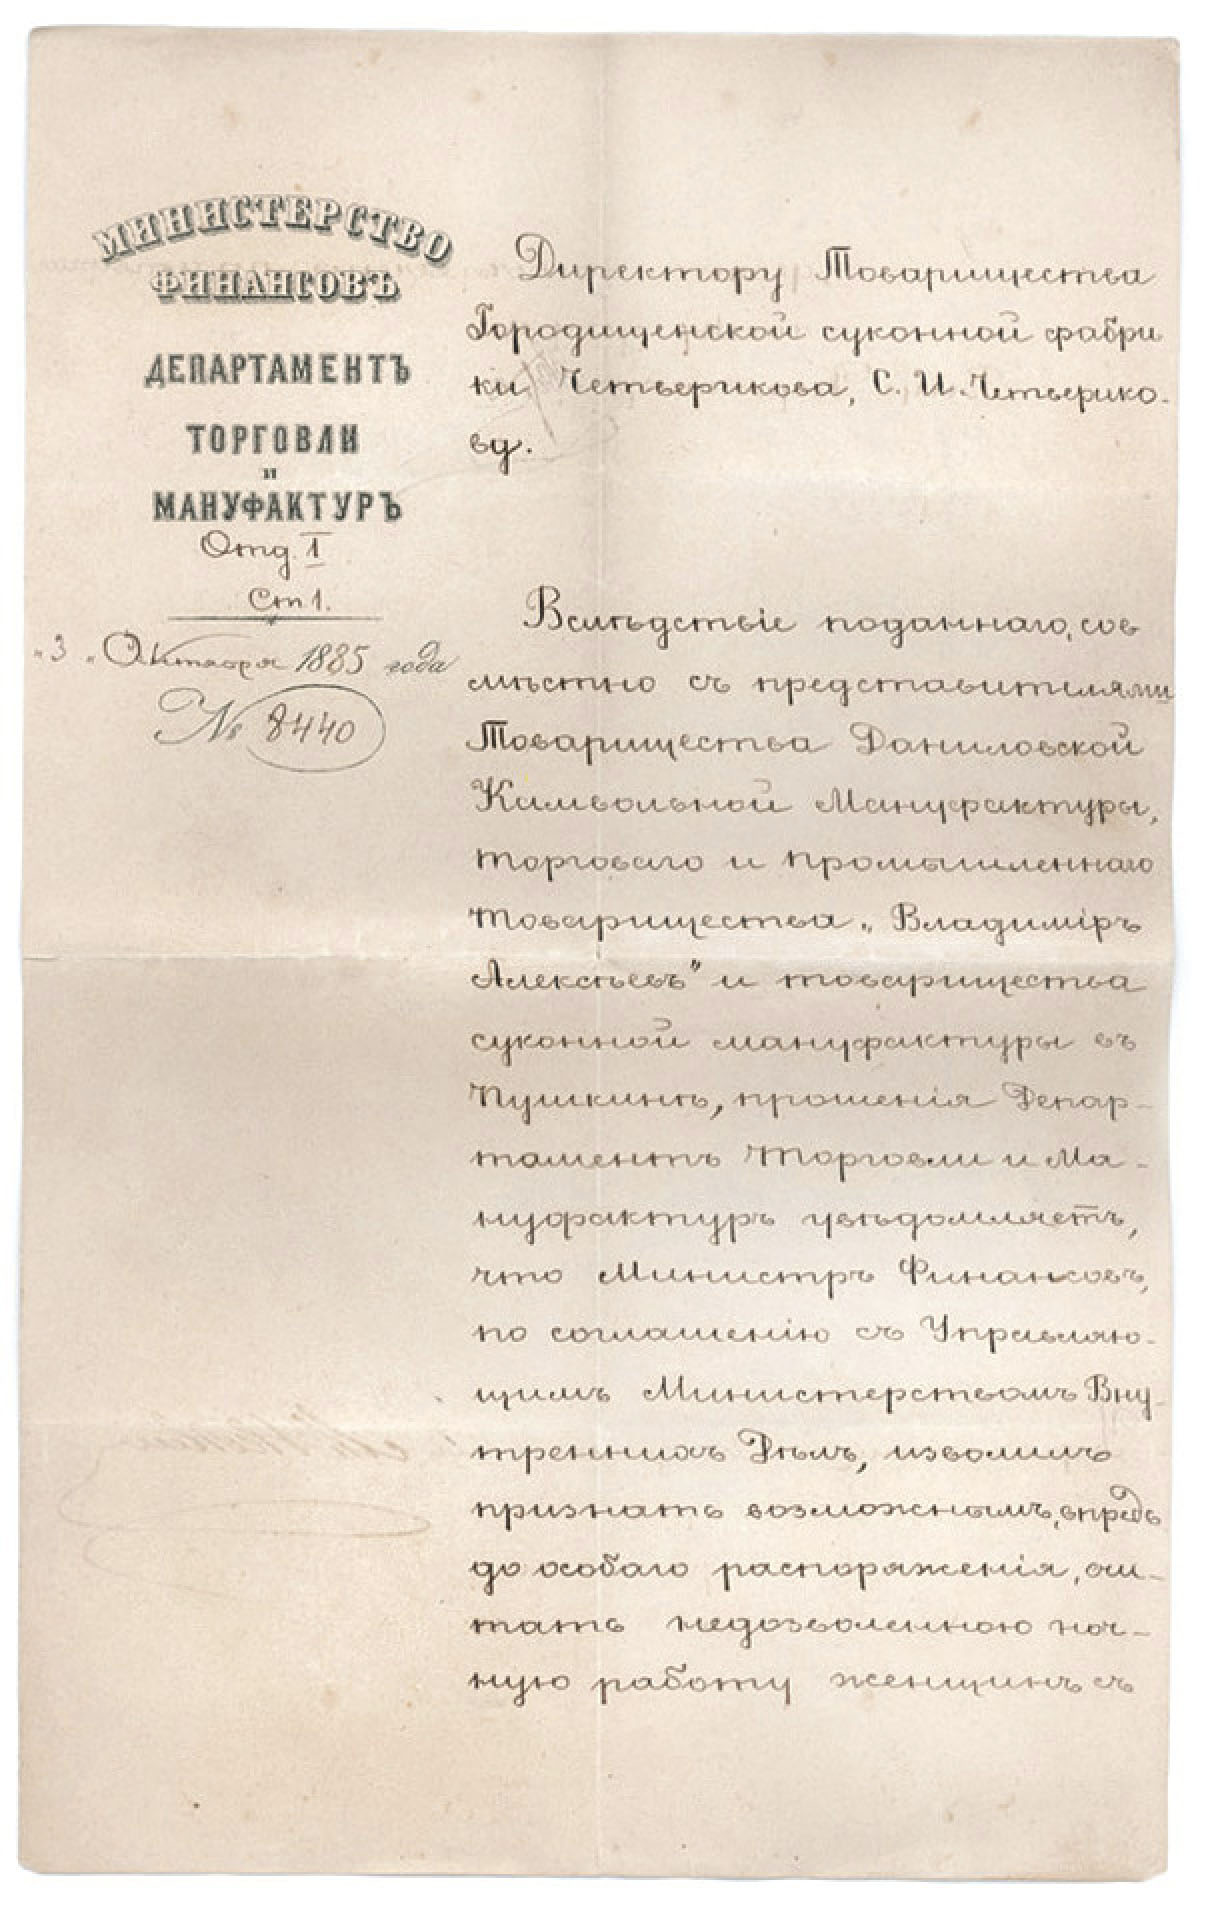 МИНИСТЕРСТВО
ФИНАНСОВЪ
ДЕПАРТАМЕНТЪ
ТОРГОВЛИ
И
МАНУФАКТУРЪ
Отд. I
Ст 1.
„3 „ Октября 1885 года
№ 8440
Директору Товарищества
Городищенской суконной фабри
ки Четверикова, С. И. Четверико-
ву.
Вслѣдствіе поданнаго, сов
мѣстно съ представителями
Товарищества Даниловской
Камвольной Мануфактуры,
торговаго и промышленнаго
товарищества „Владиміръ
Алексѣевъ" и товарищества
суконной мануфактуры въ
Пушкинѣ, прошенія Депар-
таментъ Торговли и Ма-
нуфактуръ увѣдомляетъ,
что Министръ Финансовъ,
по соглашенію съ Управляю-
щимъ Министерствомъ Вну-
треннихъ Дѣлъ, изволилъ
признать возможнымъ, впредь
до особаго распоряженія, счи-
тать недозволенною ноч-
ную работу женщинъ съ